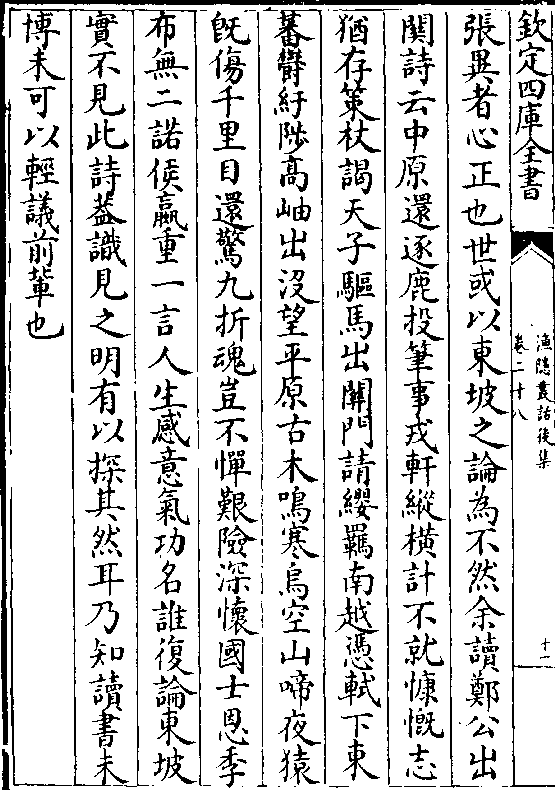 欽定四庫全書
漁隠叢話後集
卷二十八
十一
張異者心正也世或以東坡之論為不然余讀鄭公出
闗詩云中原還逐鹿投筆事戎軒縱横計不就慷慨志
猶存策杖謁天子驅馬出闗門請纓羈南越憑軾下東
蕃鬱紆陟髙岫出沒望平原古木鳴寒烏空山啼夜猿
既傷千里目還驚九折魂豈不憚艱險深懷國士恩季
布無二諾侯嬴重一言人生感意氣功名誰復論東坡
實不見此詩葢識見之明有以探其然耳乃知讀書未
博未可以輕議前輩也